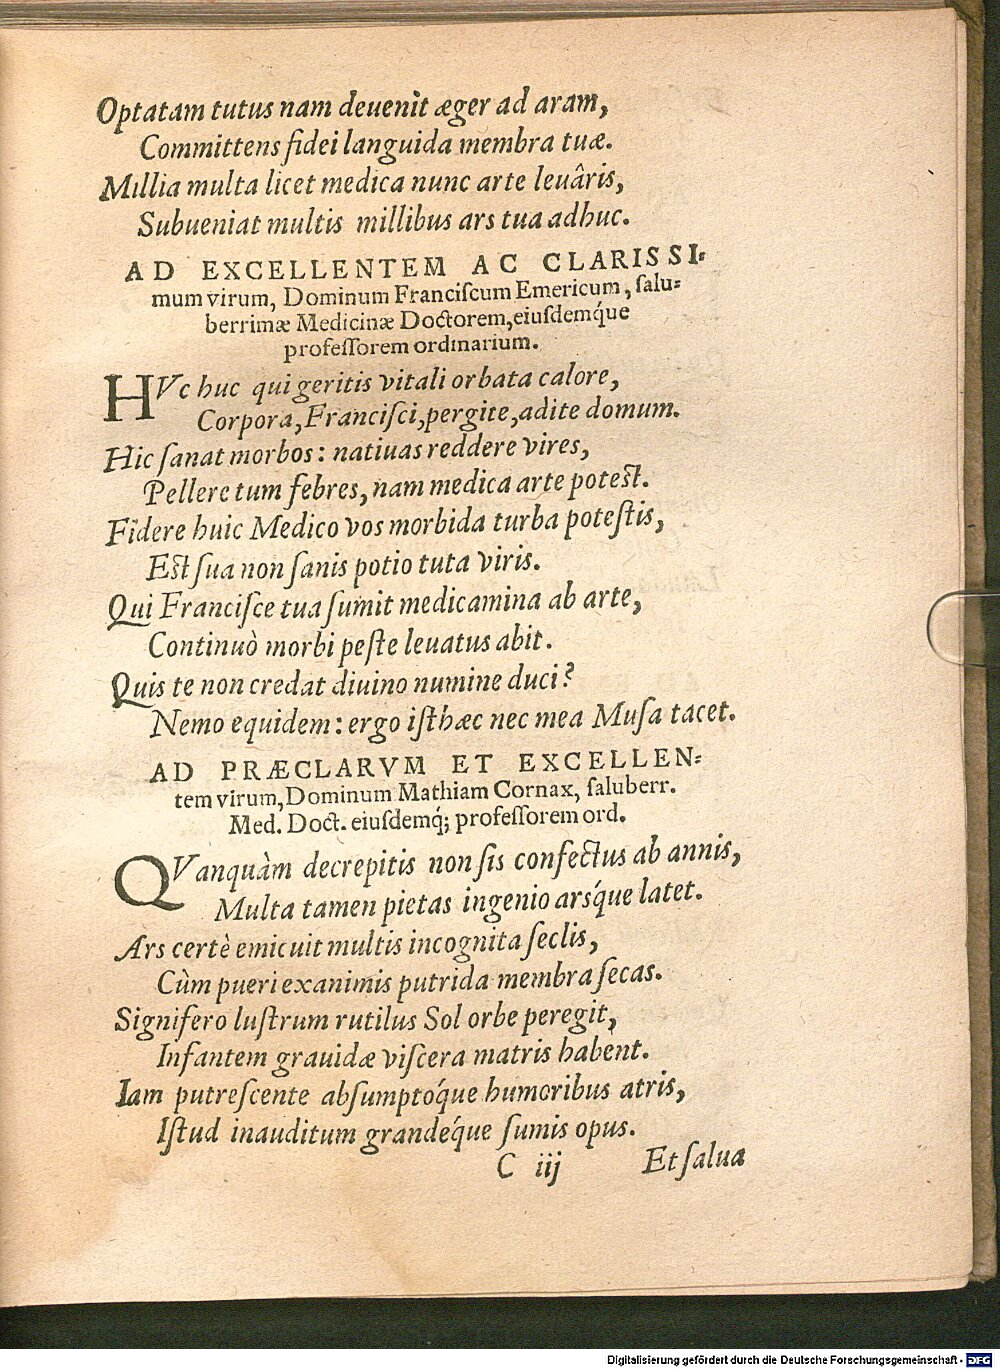 Optatam tutus nam deuenit æger ad aram,
Committens fidei languida membra tuæ.
Millia multa licet medica nunc arte leuâris,
Subueniat multis millibus ars tua adhuc.
AD EXCELLENTEM AC CLARISSI⸗
mum virum, Dominum Franciſcum Emericum, ſalu⸗
berrimæ Medicinæ Doctorem, eiuſdemq́ue
profeſſorem ordinarium.
HVc huc qui geritis vitali orbata calore,
Corpora, Franciſci, pergite, adite domum.
Hic ſanat morbos: natiuas reddere vires,
Pellere tum febres, nam medica arte poteſt.
Fidere huic Medico vos morbida turba poteſtis,
Eſt ſua non ſanis potio tuta viris.
Qui Franciſce tua ſumit medicamina ab arte,
Continuò morbi peſte leuatus abit.
Quis te non credat diuino numine duci?
Nemo equidem: ergo iſthæc nec mea Muſa tacet.
AD PRÆCLARVM ET EXCELLEN⸗
tem virum, Dominum Mathiam Cornax, ſaluberr.
Med. Doct. eiuſdemq́; profeſſorem ord.
QVanquàm decrepitis non ſis confectus ab annis,
Multa tamen pietas ingenio arsq́ue latet.
Ars certè emicuit multis incognita ſeclis,
Cùm pueri exanimis putrida membra ſecas.
Signifero luſtrum rutilus Sol orbe peregit,
Infantem grauidæ viſcera matris habent.
Iam putreſcente abſumptoq́ue humoribus atris,
Iſtud inauditum grandeq́ue ſumis opus.
C iij Et ſalua
Digitalisierung gefördert durch die Deutsche Forschungsgemeinschaft - DFG